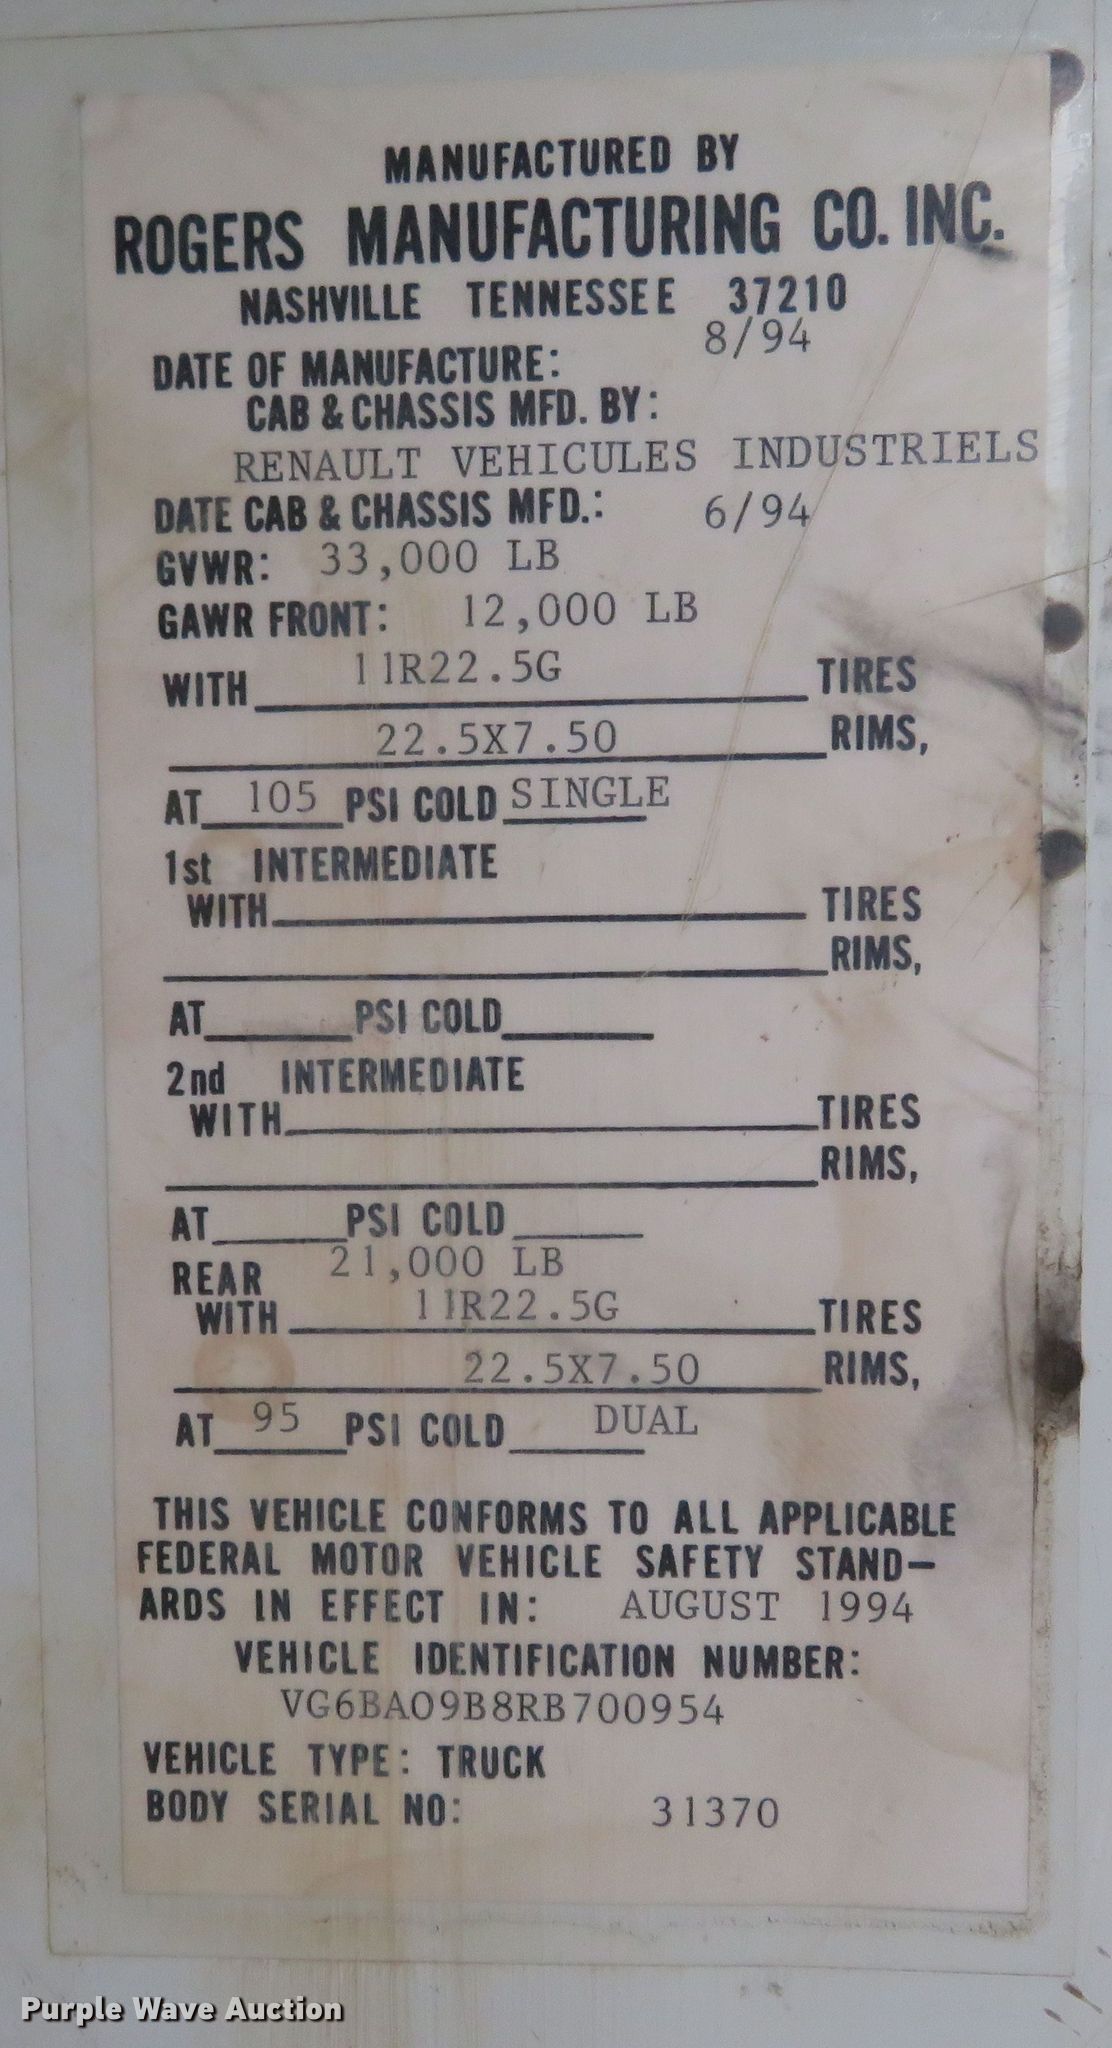 MANUFACTURED BY
ROGERS MANUFACTURING CO. INC.
NASHVILLE TENNESSEE 37210
DATE OF MANUFACTURE: 8/94
CAB & CHASSIS MFD. BY:
RENAULT VEHICULES INDUSTRIELS
DATE CAB & CHASSIS MFD.: 6/94
GVWR: 33,000 LB
GAWR FRONT: 12,000 LB
WITH 11R22.5G TIRES
22.5X7.50 RIMS,
AT 105 PSI COLD SINGLE
1st INTERMEDIATE
WITH TIRES
RIMS,
AT PSI COLD
2nd INTERMEDIATE
WITH TIRES
RIMS,
AT PSI COLD
REAR 21,000 LB
WITH 11R22.5G TIRES
22.5X7.50 RIMS,
AT 95 PSI COLD DUAL
THIS VEHICLE CONFORMS TO ALL APPLICABLE
FEDERAL MOTOR VEHICLE SAFETY STAND-
ARDS IN EFFECT IN: AUGUST 1994
VEHICLE IDENTIFICATION NUMBER:
VG6BA09B8RB700954
VEHICLE TYPE: TRUCK
BODY SERIAL NO: 31370
Purple Wave Auction